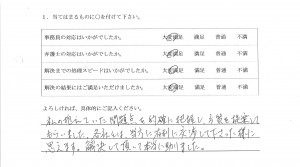 1．当てはまるものに○を付けて下さい。
事務員の対応はいかがでしたか。 大変満足 満足 普通 不満
弁護士の対応はいかがでしたか。 大変満足 満足 普通 不満
解決までの処理スピードはいかがでしたか。 大変満足 満足 普通 不満
解決の結果にはご満足いただけましたか。 大変満足 満足 普通 不満
よろしければ、具体的にご記入ください。
私の指示していた問題点を的確に把握し、方策を提案して
もらいました。おかげ様で、有利に交渉して下さった様に
思えます。解決して頂いて本当に助かりました。